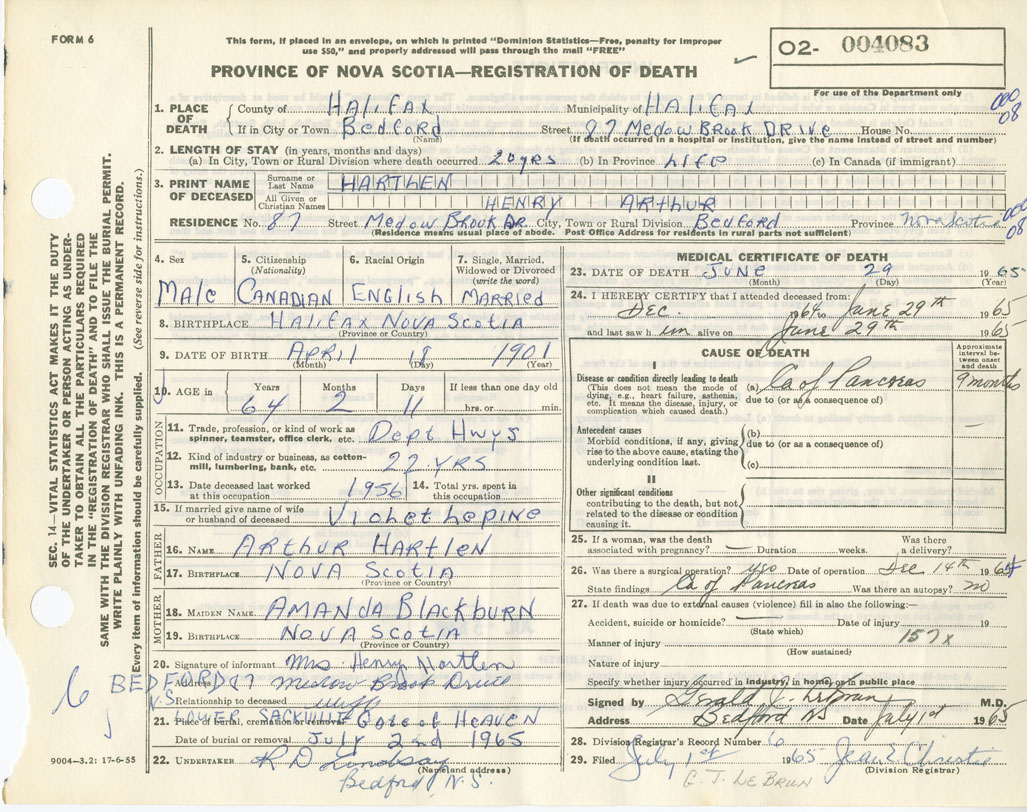 FORM 6
This form, if placed in an envelope, on which is printed "Dominion Statistics—Free, penalty for improper
use $50," and properly addressed will pass through the mail "FREE"
O2- 004083
PROVINCE OF NOVA SCOTIA—REGISTRATION OF DEATH
For use of the Department only
000
08
1. PLACE OF DEATH County of Halifax Municipality of Halifax
If in City or Town Bedford Street 87 Medow Brook Drive House No.
(Name) (If death occurred in a hospital or institution, give the name instead of street and number)
2. LENGTH OF STAY (in years, months and days)
(a) In City, Town or Rural Division where death occurred 20 yrs (b) In Province Life (c) In Canada (if immigrant)
3. PRINT NAME OF DECEASED Surname or Last Name HARTLEN
All Given or Christian Names HENRY ARTHUR
RESIDENCE No. 87 Street Medow Brook Dr. City, Town or Rural Division Bedford Province Nova Scotia
000
08
(Residence means usual place of abode. Post Office Address for residents in rural parts not sufficient)
4. Sex Male
5. Citizenship (Nationality) Canadian
6. Racial Origin English
7. Single, Married, Widowed or Divorced (write the word) Married
8. BIRTHPLACE Halifax Nova Scotia
(Province or Country)
9. DATE OF BIRTH April 18 1901
(Month) (Day) (Year)
10. AGE in Years Months Days If less than one day old
64 2 11 hrs. or min.
OCCUPATION
11. Trade, profession, or kind of work as spinner, teamster, office clerk, etc. Dept Hwys
12. Kind of industry or business, as cotton-mill, lumbering, bank, etc. 22 yrs
13. Date deceased last worked at this occupation 1956 14. Total yrs. spent in this occupation
15. If married give name of wife or husband of deceased Violet Lepine
FATHER
16. NAME Arthur Hartlen
17. BIRTHPLACE Nova Scotia
(Province or Country)
MOTHER
18. MAIDEN NAME Amanda Blackburn
19. BIRTHPLACE Nova Scotia
(Province or Country)
20. Signature of informant Mrs. Henry Hartlen
Address 87 Medow Brook Drive
BEDFORD
N.S.
Relationship to deceased wife
LOWER SACKVILLE
21. Place of burial, cremation or removal Gate of Heaven
Date of burial or removal July 2nd 1965
22. UNDERTAKER R D Lindsay
(Name and address)
Bedford, N.S.
9004—3.2: 17-6-55
MEDICAL CERTIFICATE OF DEATH
23. DATE OF DEATH June 29 1965
(Month) (Day) (Year)
24. I HEREBY CERTIFY that I attended deceased from:
Dec. 1964 to June 29th 1965
and last saw him alive on June 29th 1965
CAUSE OF DEATH
Approximate interval between onset and death
I
Disease or condition directly leading to death (a) Ca of Pancreas 9 months
(This does not mean the mode of dying, e.g., heart failure, asthenia, etc. It means the disease, injury, or complication which caused death.)
due to (or as a consequence of)
Antecedent causes (b) —
Morbid conditions, if any, giving rise to the above cause, stating the underlying condition last.
due to (or as a consequence of)
(c)
II
Other significant conditions
contributing to the death, but not related to the disease or condition causing it.
25. If a woman, was the death associated with pregnancy? — Duration weeks. Was there a delivery?
26. Was there a surgical operation? yes Date of operation Dec 14th 1964
State findings Ca of Pancreas Was there an autopsy? no
27. If death was due to external causes (violence) fill in also the following:—
Accident, suicide or homicide? — Date of injury 19
(State which)
157x
Manner of injury
(How sustained)
Nature of injury
Specify whether injury occurred in industry, in home, or in public place
Signed by Gerald J. LeBrun M.D.
Address Bedford NS Date July 1st 1965
28. Division Registrar's Record Number 6
29. Filed July 1st 1965 Jean E. Christie
(Division Registrar)
G. J. LeBrun
SEC. 14—VITAL STATISTICS ACT MAKES IT THE DUTY
OF THE UNDERTAKER OR PERSON ACTING AS UNDER-
TAKER TO OBTAIN ALL THE PARTICULARS REQUIRED
IN THE "REGISTRATION OF DEATH" AND TO FILE THE
SAME WITH THE DIVISION REGISTRAR WHO SHALL ISSUE THE BURIAL PERMIT.
WRITE PLAINLY WITH UNFADING INK. THIS IS A PERMANENT RECORD.
Every item of information should be carefully supplied. (See reverse side for instructions.)
6